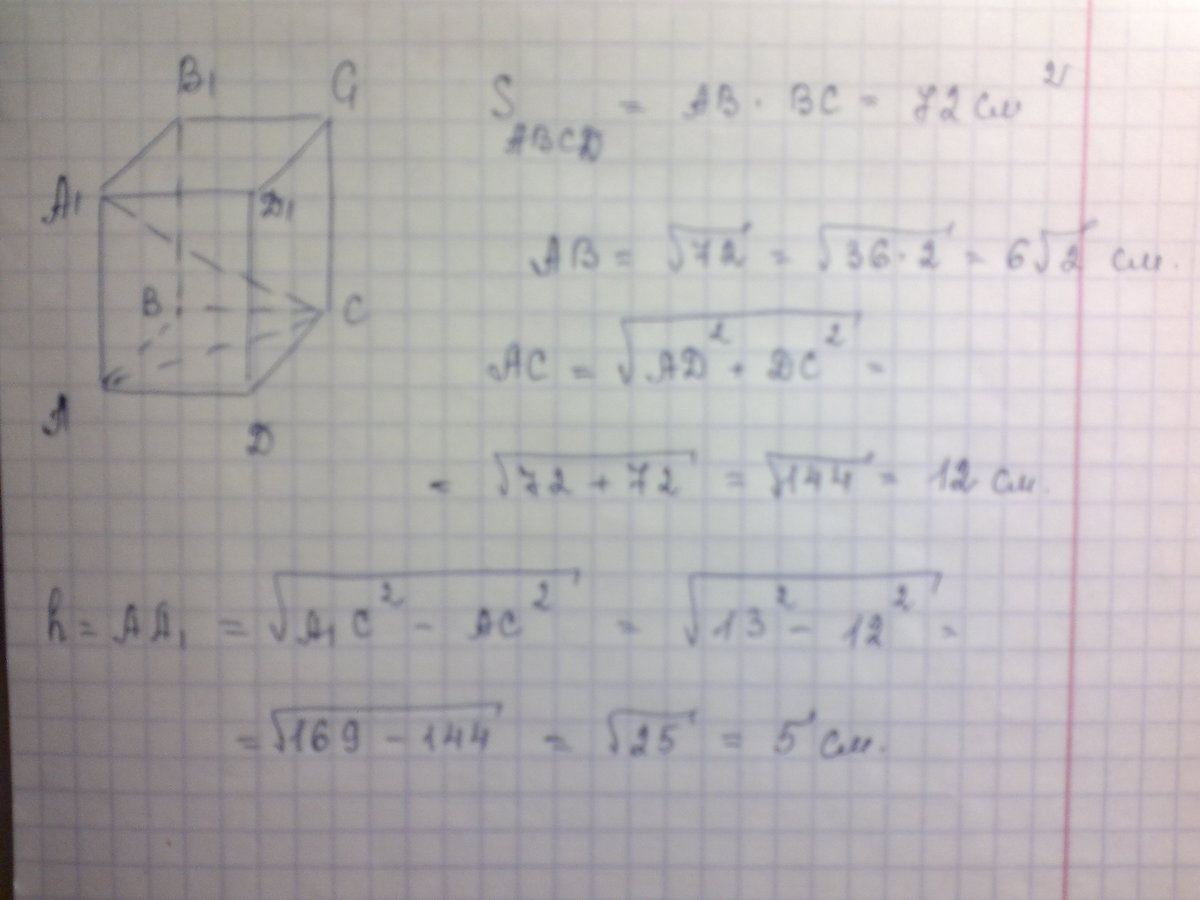 B₁ C₁
S_ABCD = AB · BC = 72 см²
A₁ D₁
AB = √72 = √36·2 = 6√2 см.
B C
AC = √AD² + DC² =
A D
= √72 + 72 = √144 = 12 см.
h = AA₁ = √A₁C² - AC² = √13² - 12² =
= √169 - 144 = √25 = 5 см.